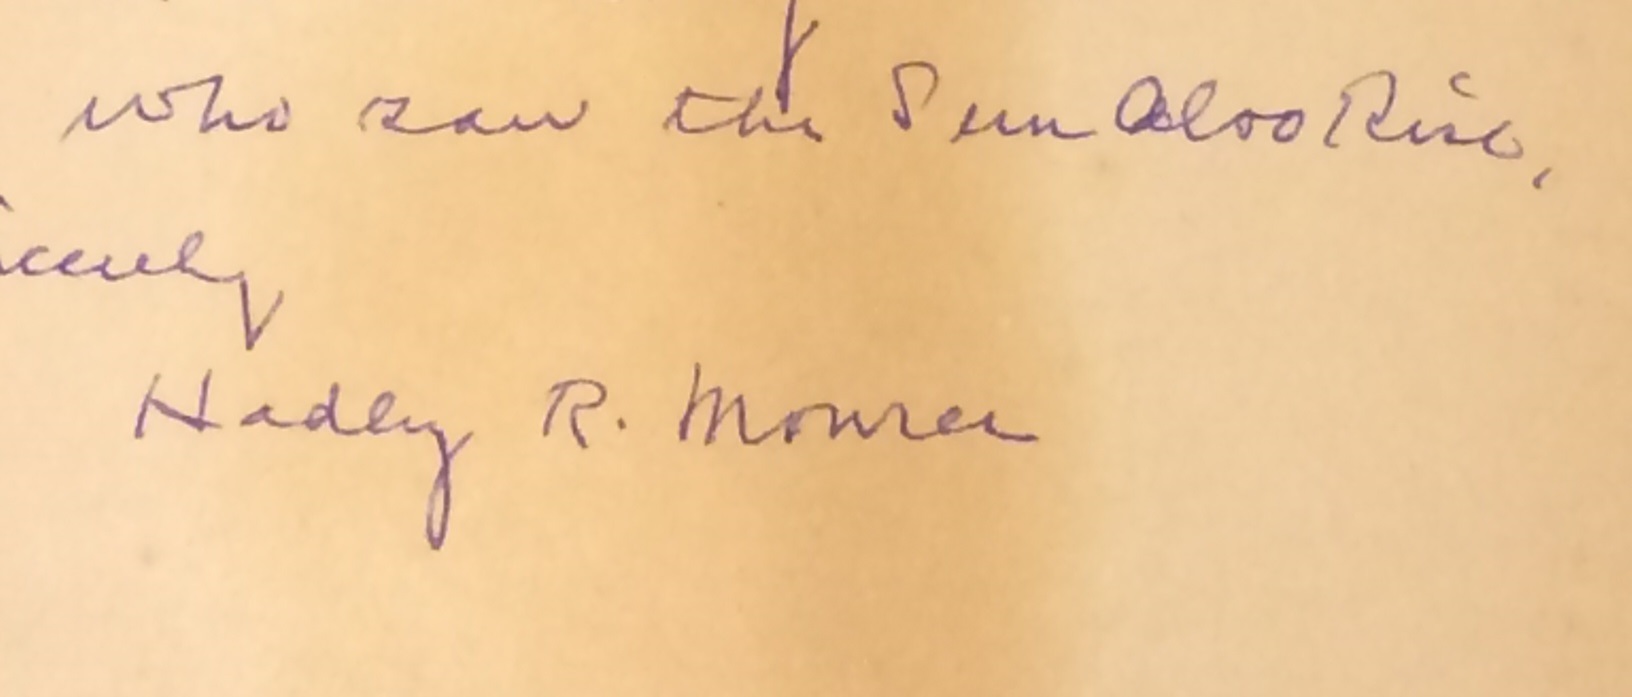 who saw the Sun Also Rise,
icerely
Hadley R. Mowrer